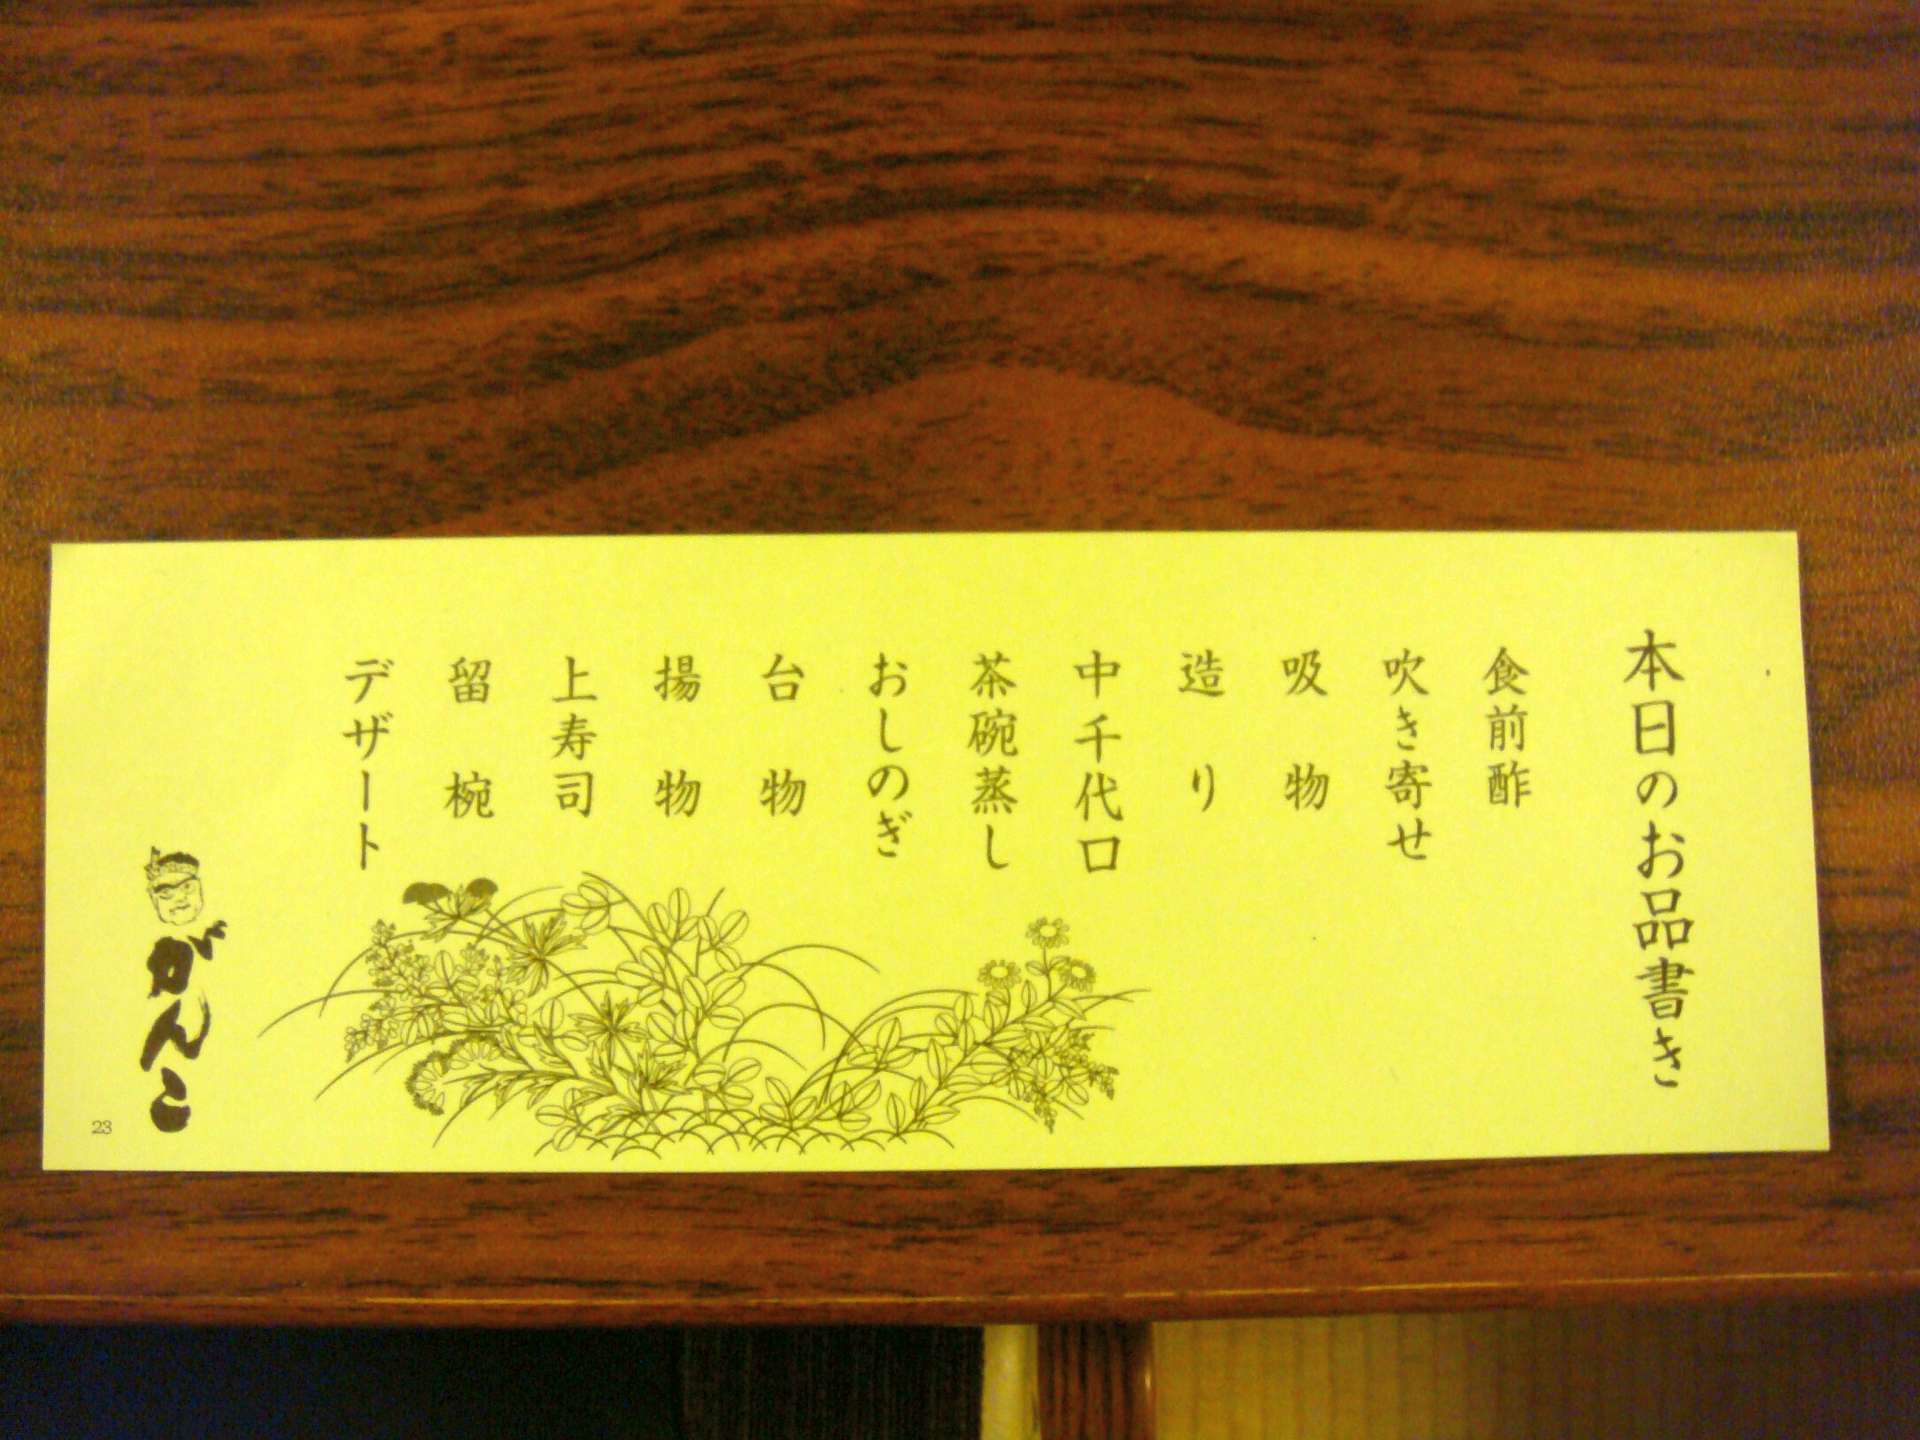 本日のお品書き
食前酢
吹き寄せ
吸物
造り
中千代口
茶碗蒸し
おしのぎ
台物
揚物
上寿司
留椀
デザート
がんこ
23